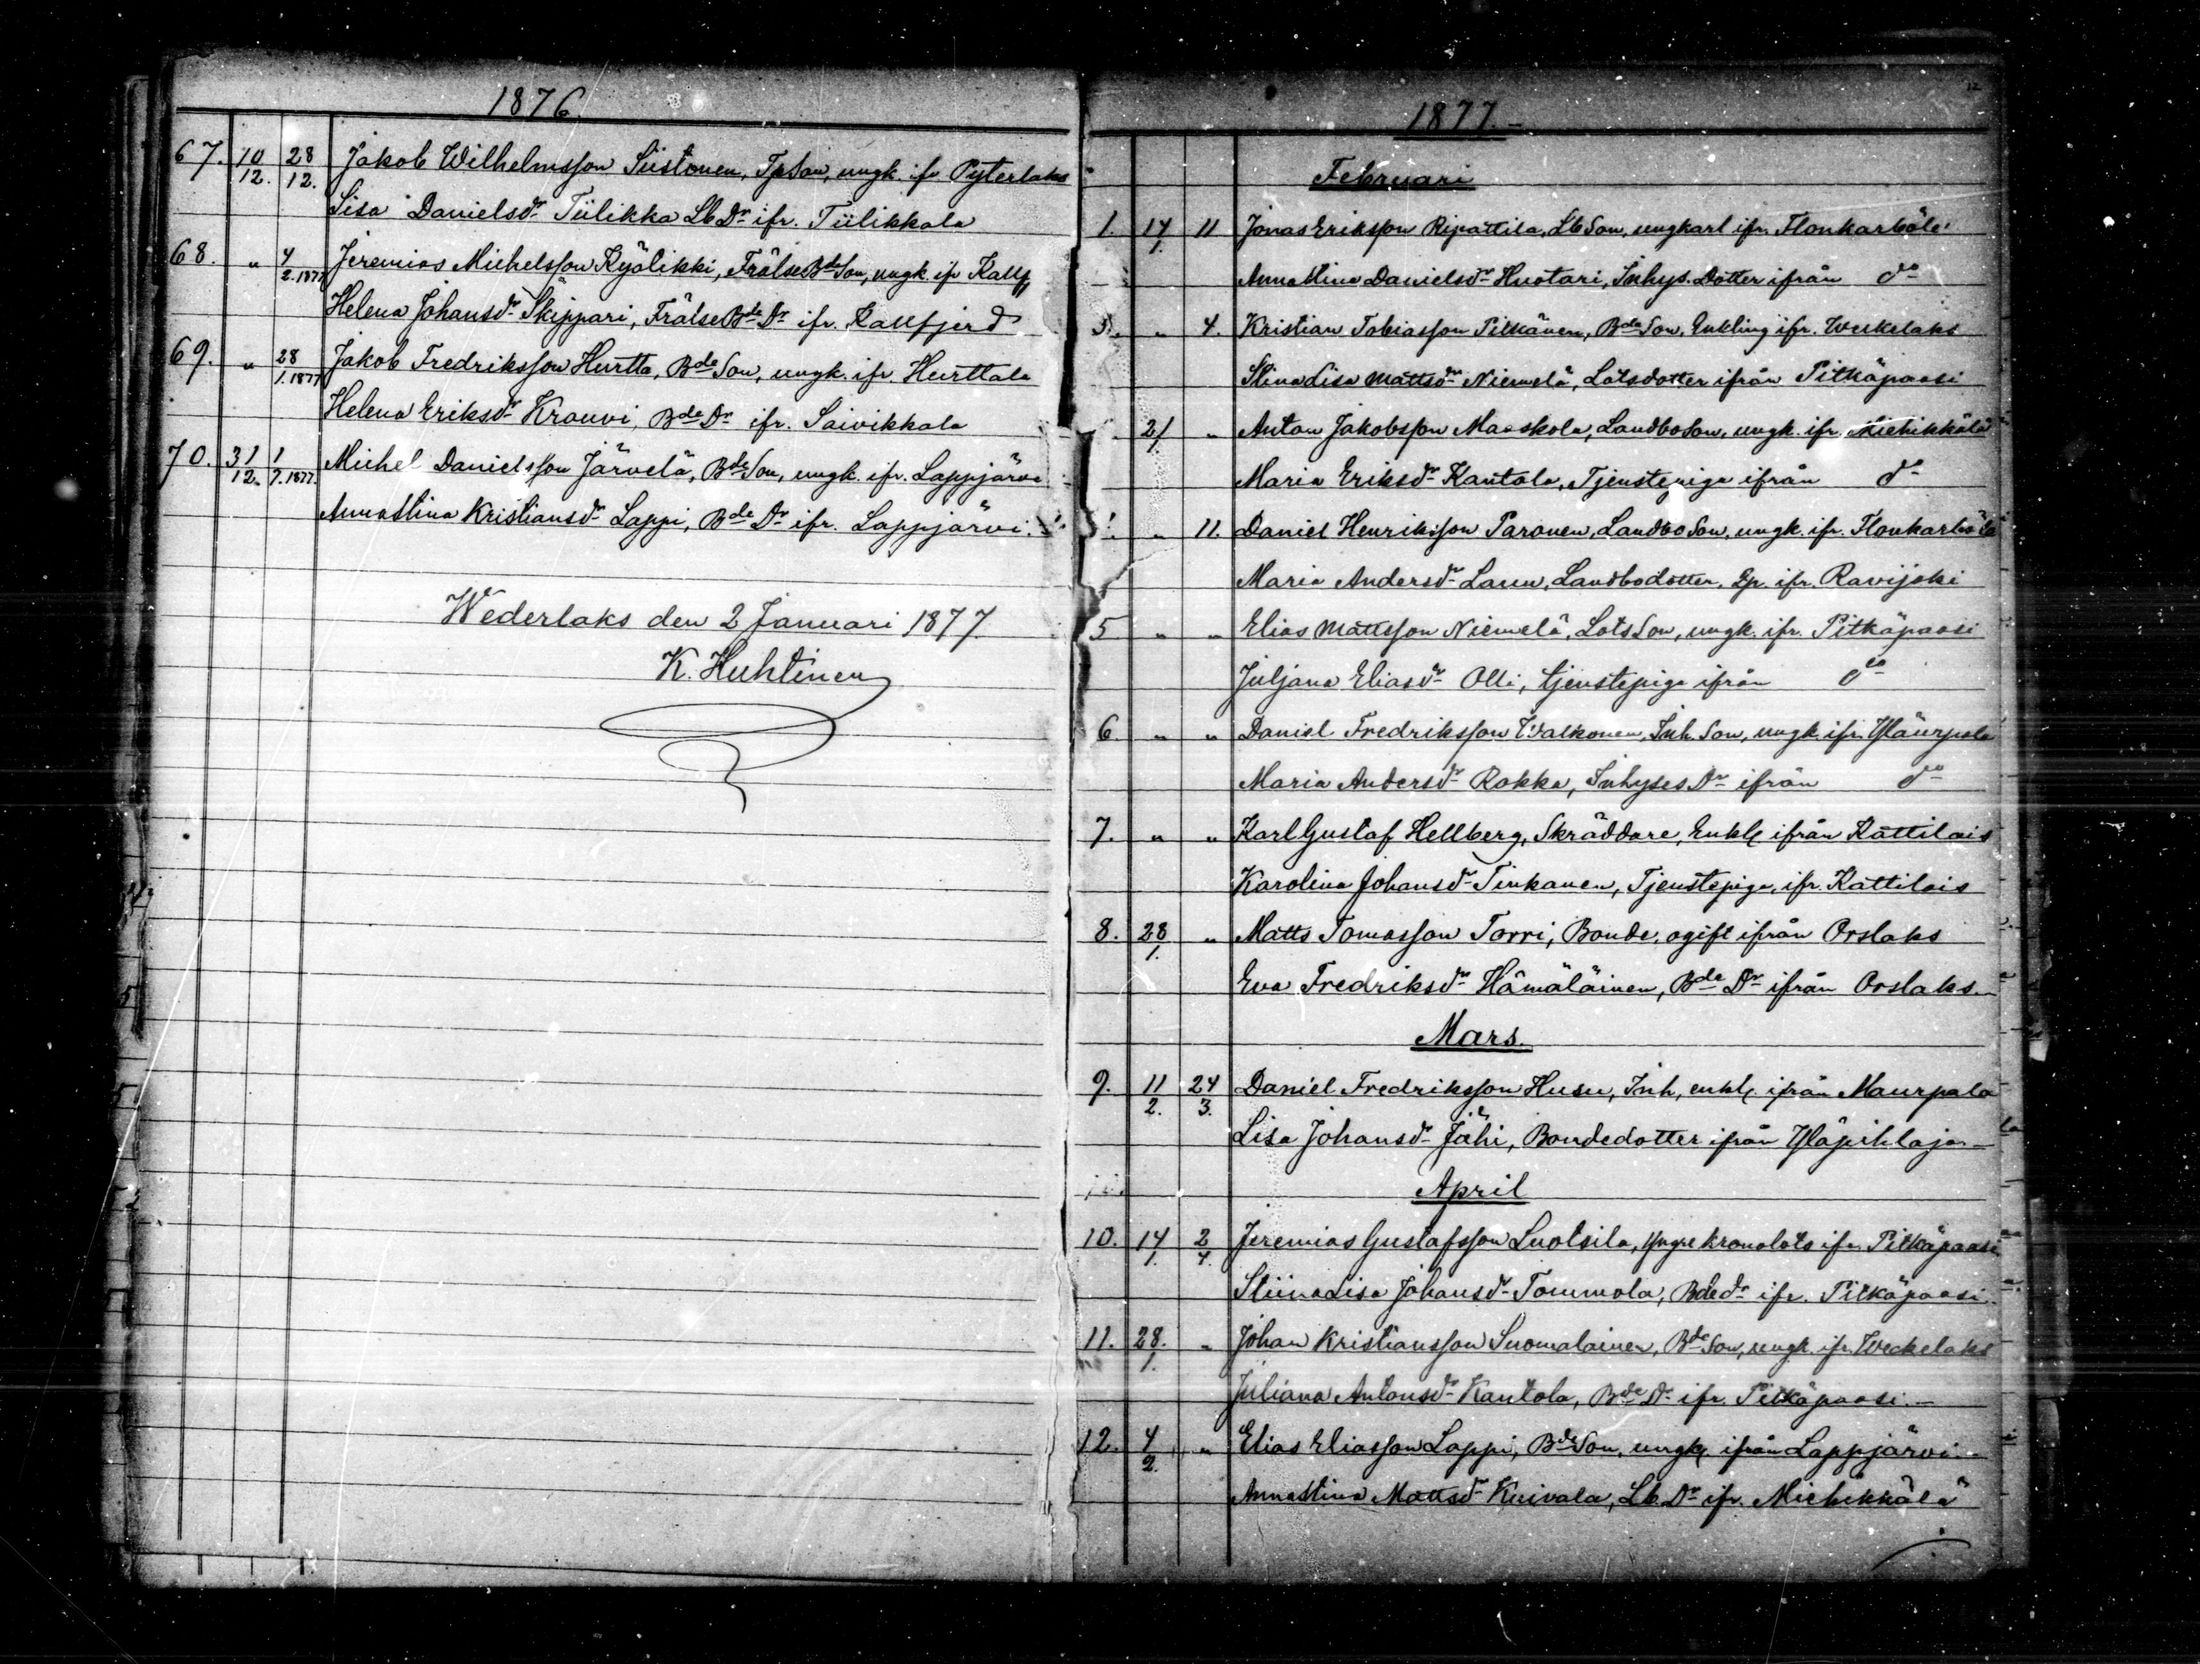 1876.
67. 10/12. 28/12. Jakob Wilhelmsson Siistonen, TpSon, ungk. ifr Pyterlaks
Lisa Danielsdr Tiilikka Lb Dr ifr. Tiilikkala
68. " 4/2.1877 Jeremias Michelsson Kyölikki, FrälseBdeSon, ungk. ifr Kallf
Helena Johansdr Skippari, FrälseBde Dr ifr. Kallfjerd
69. " 28/1.1877 Jakob Fredriksson Hurtta, BdeSon, ungk. ifr. Hurttala
Helena Eriksdr Krouvi, Bde Dr ifr. Saivikkala
70. 31/12. 1/7.1877. Michel Danielsson Järvelä, BdeSon, ungk. ifr. Lappjärvi
AnnaStina Kristiansdr Lappi, Bde Dr ifr. Lappjärvi.
Wederlaks den 2 Januari 1877
K. Huhtinen
1877.
Februari
1. 14/1. 11 Jonas Eriksson Ripattila, LbSon, ungkarl ifr. Flonkarböle
AnnaStina Danielsdr Huotari, Inhys. Dotter ifrån do
3. " 4. Kristian Tobiasson Pitkänen, BdeSon, Enkling ifr. Weckelaks
StinaLisa Mattsdr Niemelä, Lotsdotter ifrån Pitkäpaasi
21/1 " Anton Jakobsson Maaskola, LandboSon, ungk. ifr. Miehikkälä
Maria Eriksdr Kantola, Tjenstepiga ifrån do
" 11. Daniel Henriksson Paronen, LandboSon, ungk. ifr. Flonkarböle
Maria Andersdr Laun, Landbodotter, ifr. Ravijoki
5 " " Elias Mattsson Niemelä, LotsSon, ungk. ifr. Pitkäpaasi
Juljana Eliasdr Olli, tjenstepiga ifrån do
6 " " Daniel Fredriksson Walkonen, Inh. Son, ungk. ifr. Yläurpala
Maria Andersdr Rokka, Inhyses Dr ifrån do
7. " " Karl Gustaf Hellberg, Skräddare, Enkl. ifrån Kattilais
Karolina Johansdr Tinkanen, Tjenstepiga, ifr. Kattilais
8. 28/1. " Matts Tomasson Torri, Bonde, ogift ifrån Orslaks
Eva Fredriksdr Hämäläinen, Bde Dr ifrån Orslaks.
Mars.
9. 11/2. 24/3. Daniel Fredriksson Husu, Inh, enkl. ifrån Maurpala
Lisa Johansdr Jähi, Bondedotter ifrån Yläpihlaja
April
10. 14/1. 2/4. Jeremias Gustafsson Luotsila, Yngre kronolots ifr. Pitkäpaasi
StiinaLisa Johansdr Tommola, Bdedr ifr. Pitkäpaasi.
11. 28./1. " Johan Kristiansson Suomalainen, BdeSon, ungk. ifr. Weckelaks
Juliana Antonsdr Kantola, Bde Dr ifr. Pitkäpaasi.
12. 4/2. " Elias Eliasson Lappi, BdeSon, ungk. ifrån Lappjärvi.
AnnaStina Mattsdr Kuivala, Lb Dr ifr. Miehikkälä